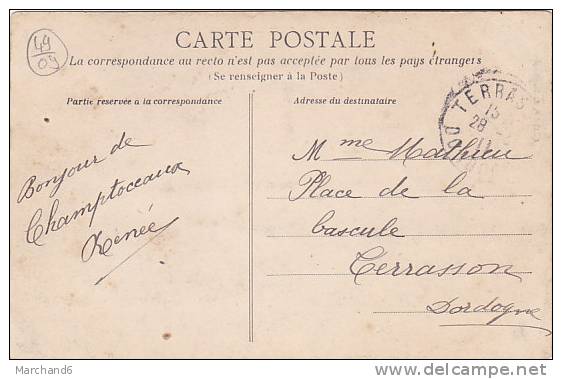 49
09
CARTE POSTALE
La correspondance au recto n'est pas acceptée par tous les pays étrangers
(Se renseigner à la Poste)
Partie reservée à la correspondance
Adresse du destinataire
TERRAS
15
28
Bonjour de
Champtoceaux
Renée
Mme Mathieu
Place de la
bascule
Terrasson
Dordogne
Marchand6
http://www.delcampe.net